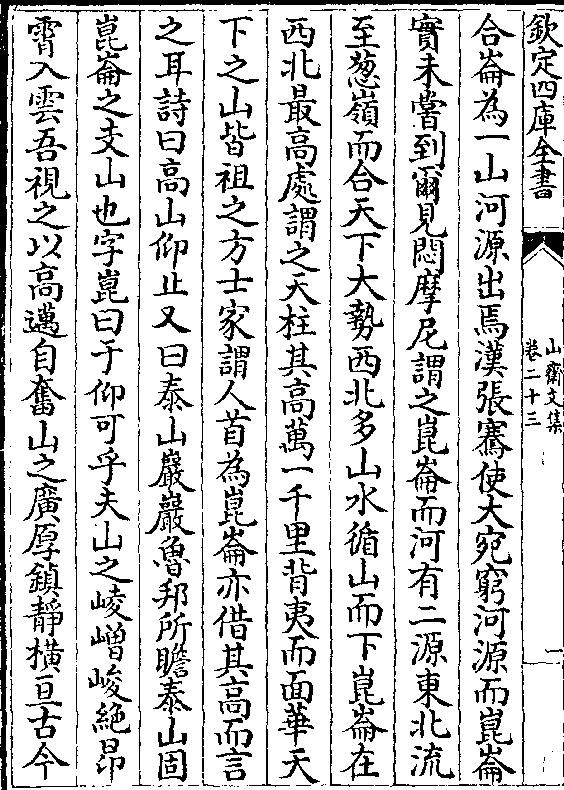 欽定四庫全書
山齋文集
卷二十三
一
合崙為一山河源出焉漢張騫使大宛窮河源而崑崙
實未嘗到爾見悶摩尼謂之崑崙而河有二源東北流
至葱嶺而合天下大勢西北多山水循山而下崑崙在
西北最高處謂之天柱其高萬一千里背夷而面華天
下之山皆祖之方士家謂人首為崑崙亦借其高而言
之耳詩曰高山仰止又曰泰山巖巖魯邦所瞻泰山固
崑崙之支山也字崑曰于仰可乎夫山之崚嶒峻絶昂
霄入雲吾視之以高邁自奮山之廣厚鎮靜橫亘古今